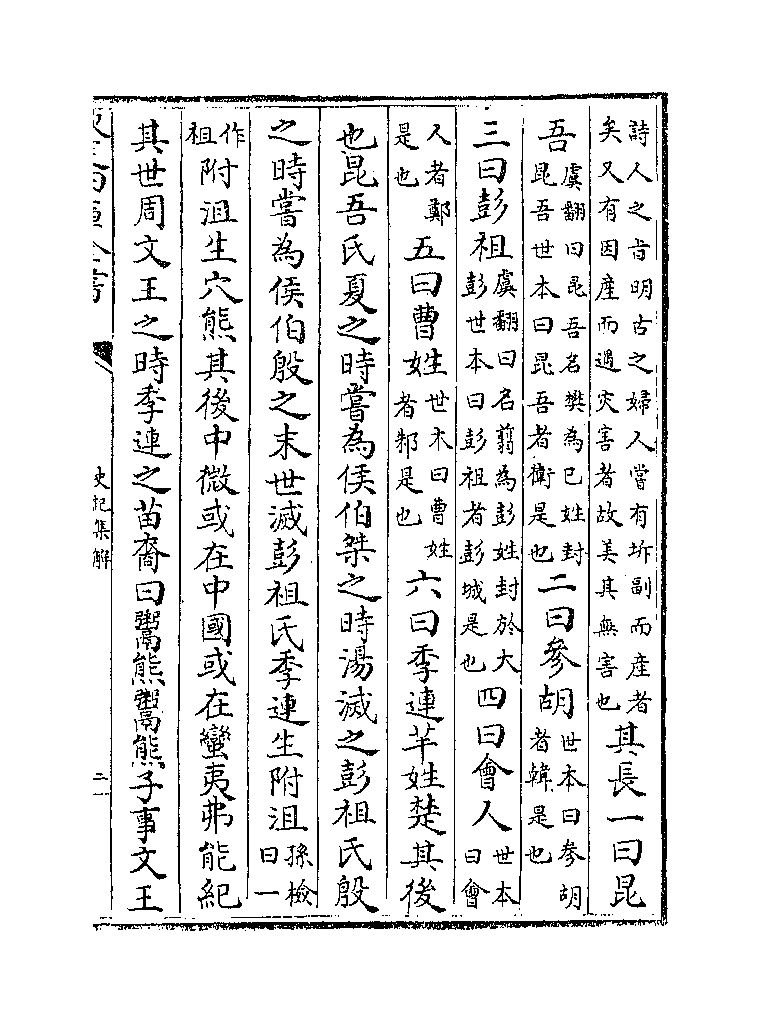 詩人之旨明古之婦人嘗有坼副而產者矣又有因產而遇災害者故美其無害也其長一曰昆
吾虞翻曰昆吾名樊為己姓封昆吾世本曰昆吾者衛是也二曰參胡世本曰參胡者韓是也
三曰彭祖虞翻曰名翦為彭姓封於大彭世本曰彭祖者彭城是也四曰會人世本曰會
人者鄭是也五曰曹姓世本曰曹姓者邾是也六曰季連芈姓楚其後
也昆吾氏夏之時嘗為侯伯桀之時湯滅之彭祖氏殷
之時嘗為侯伯殷之末世滅彭祖氏季連生附沮孫檢曰一
作祖附沮生穴熊其後中微或在中國或在蠻夷弗能紀
其世周文王之時季連之苗裔曰鬻熊鬻熊子事文王
史記集解